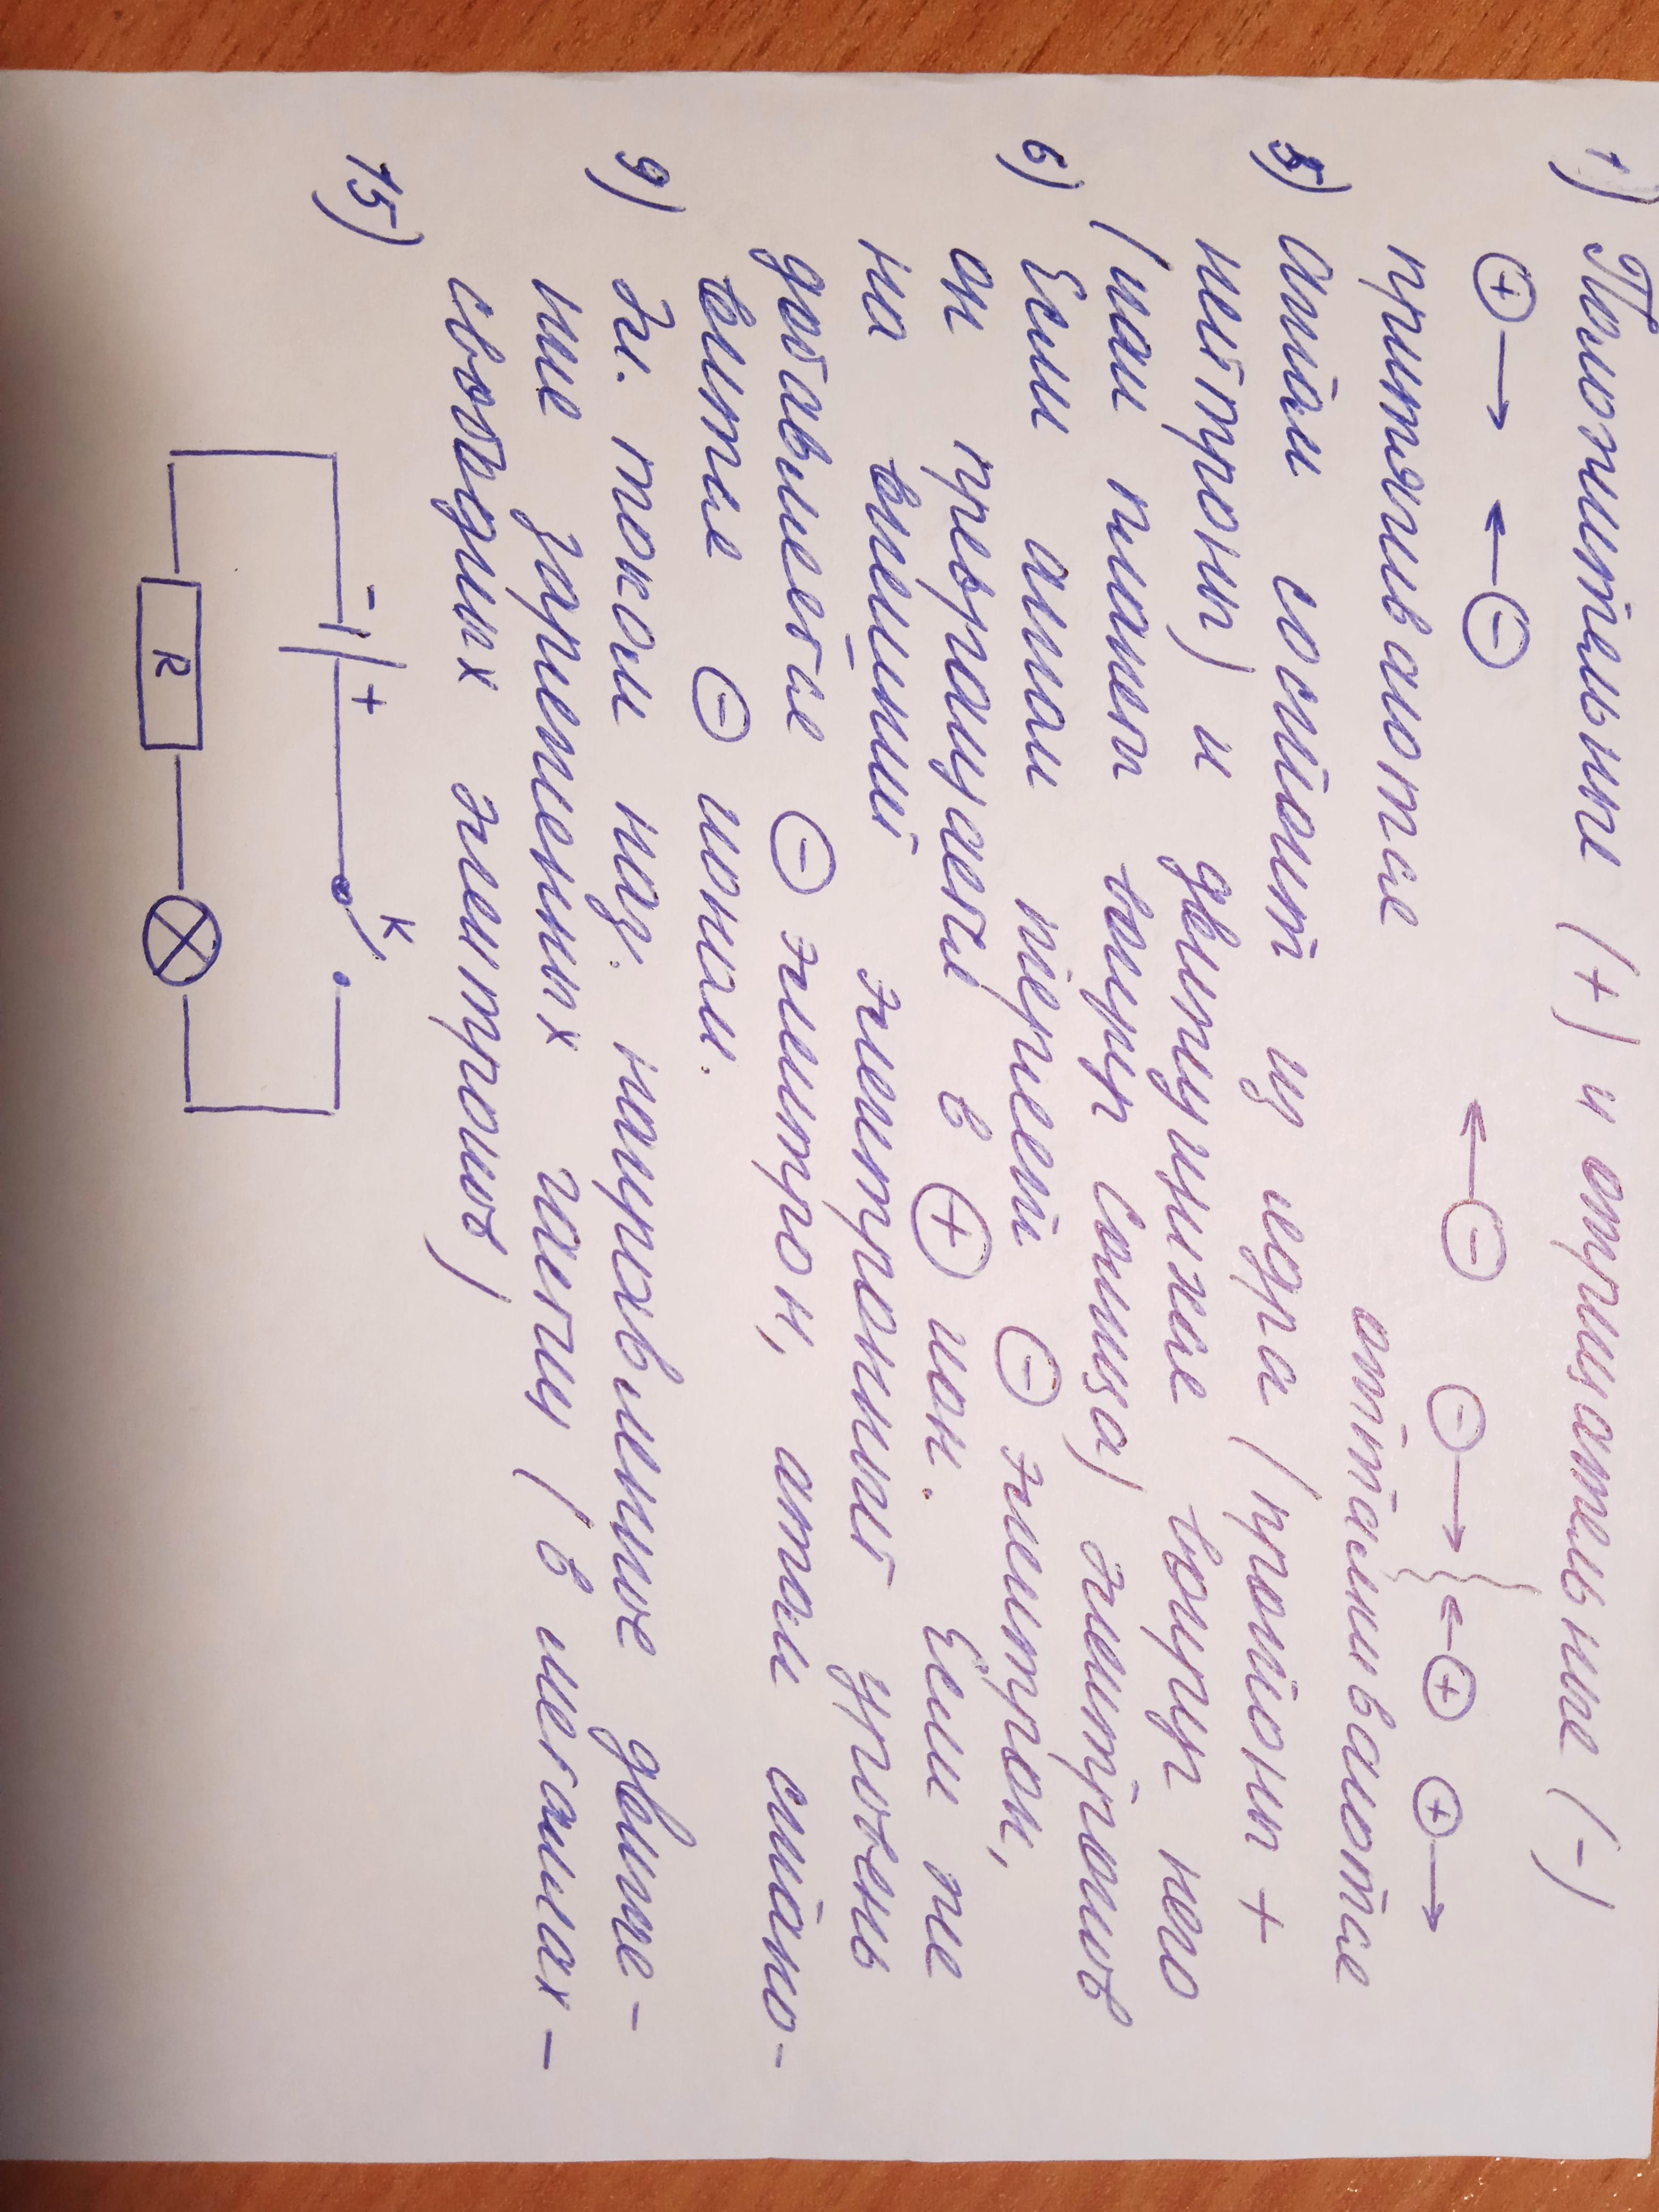 1) Положительные (+) и отрицательные (-)
+ → ← - ← - - → ← + + →
притягиваются отталкиваются
5) атом состоит из ядра (протоны +
нейтроны) и движущихся вокруг него
(как планет вокруг солнца) электронов
6) Если атом теряет - электрон,
он превращается в + ион. Если же
на внешний электронный уровень
добавляется - электрон, атом стано-
вится - ионом.
9) Эл. током наз. направленное движе-
ние заряженных частиц (в металлах -
свободных электронов)
15)
- + К
R